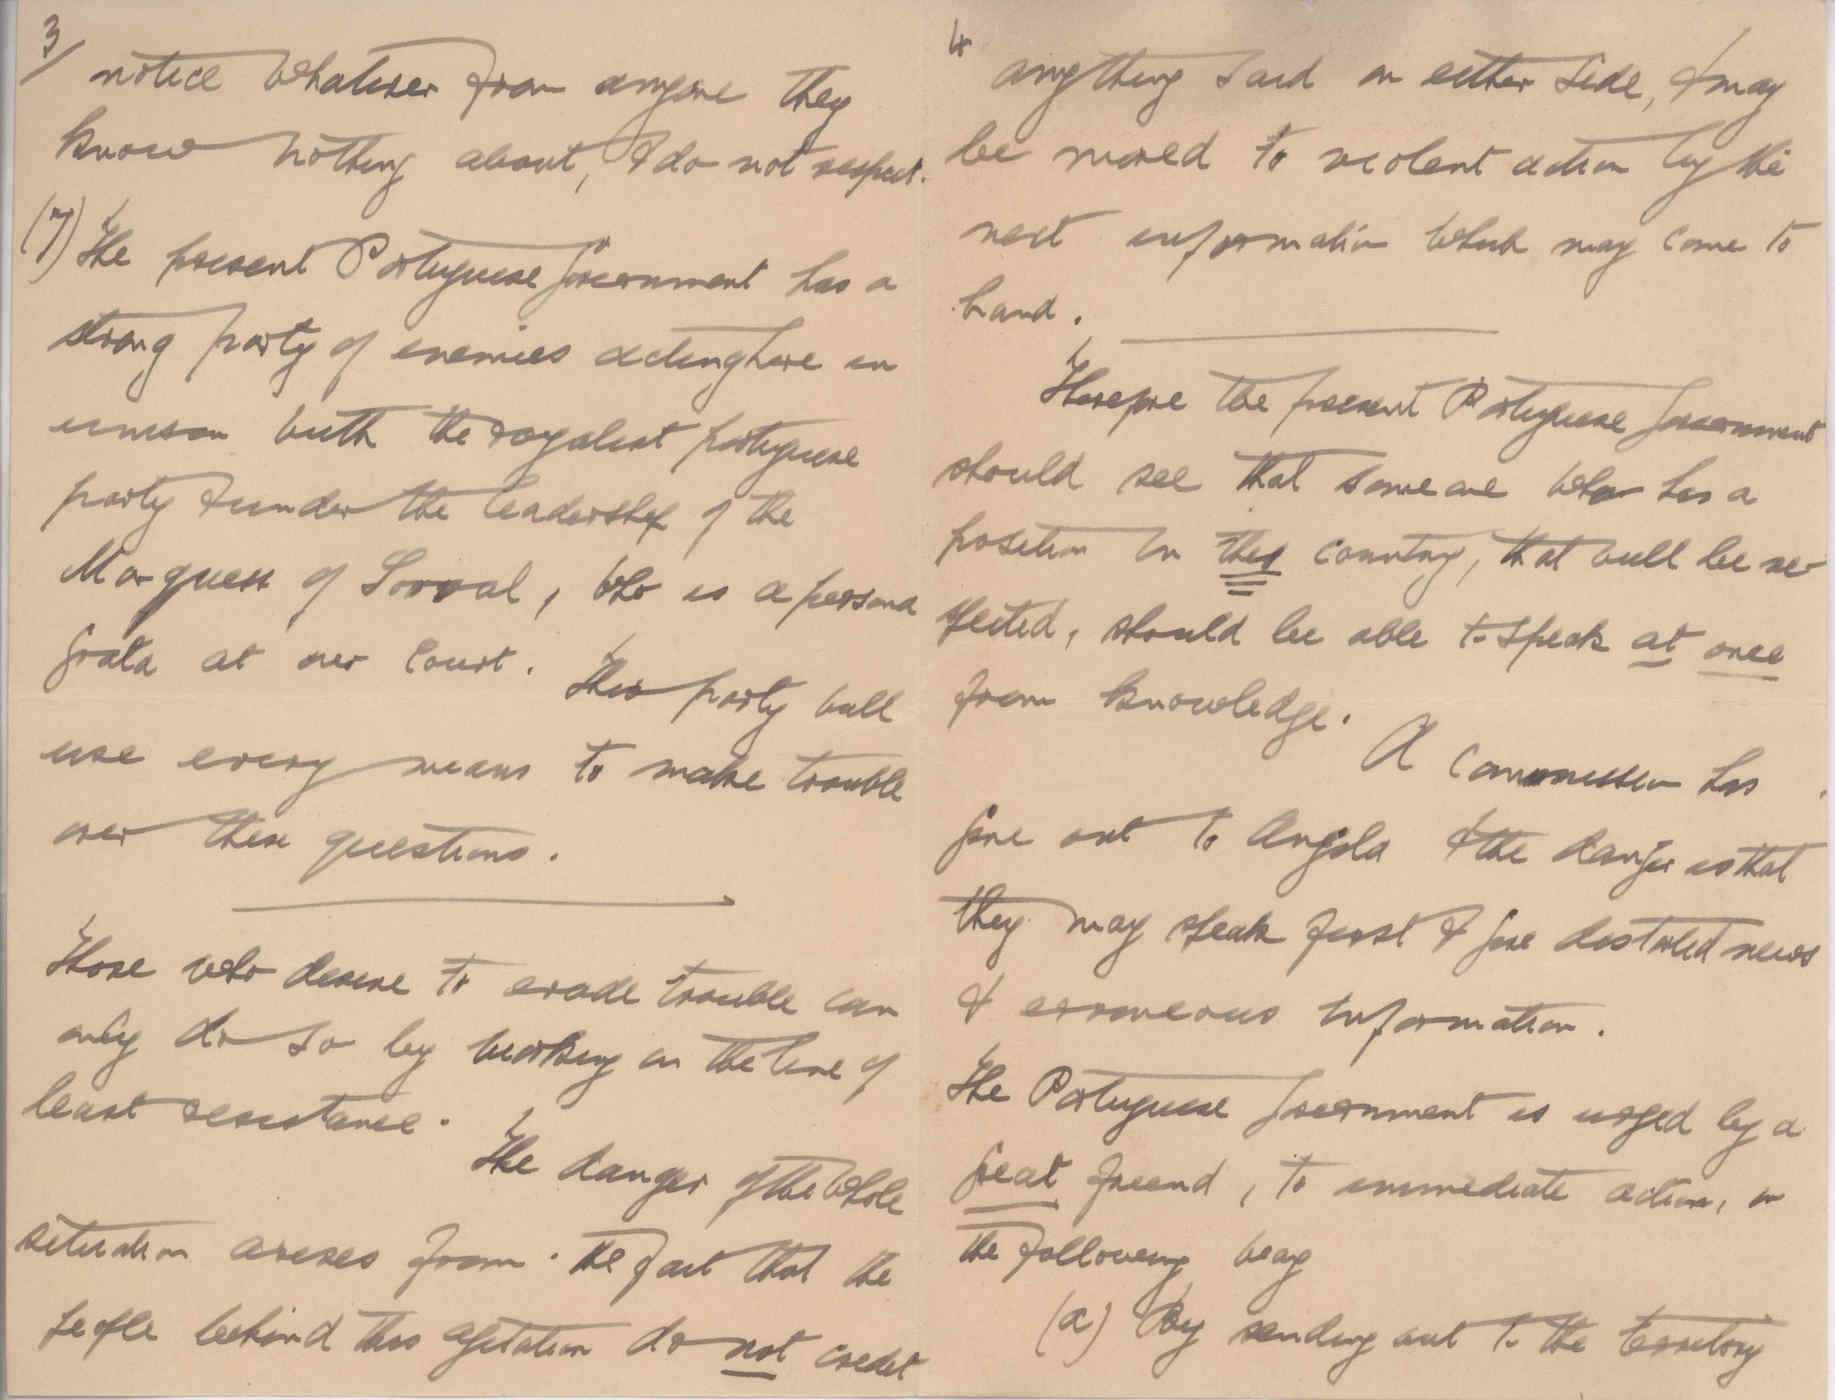 3/
notice whatever from anyone they
know nothing about, & do not respect.
(7) The present Portuguese Government has a
strong party of enemies acting here in
unison with the royalist portuguese
party & under the leadership of the
Marquess of Soveral, who is a persona
grata at our Court. This party will
use every means to make trouble
over these questions.
Those who desire to evade trouble can
only do so by working on the line of
least resistance.
The danger of the whole
situation arises from the fact that the
people behind this agitation do not credit
4
anything said on either side, & may
be moved to violent action by the
next information which may come to
hand.
Therefore the present Portuguese Government
should see that someone who has a
position in this country, that will be re-
spected, should be able to speak at once
from knowledge.
A Commission has
gone out to Angola & the danger is that
they may speak first & give distorted news
& erroneous information.
The Portuguese Government is urged by a
great friend, to immediate action, in
the following way
(a) By sending out to the territory